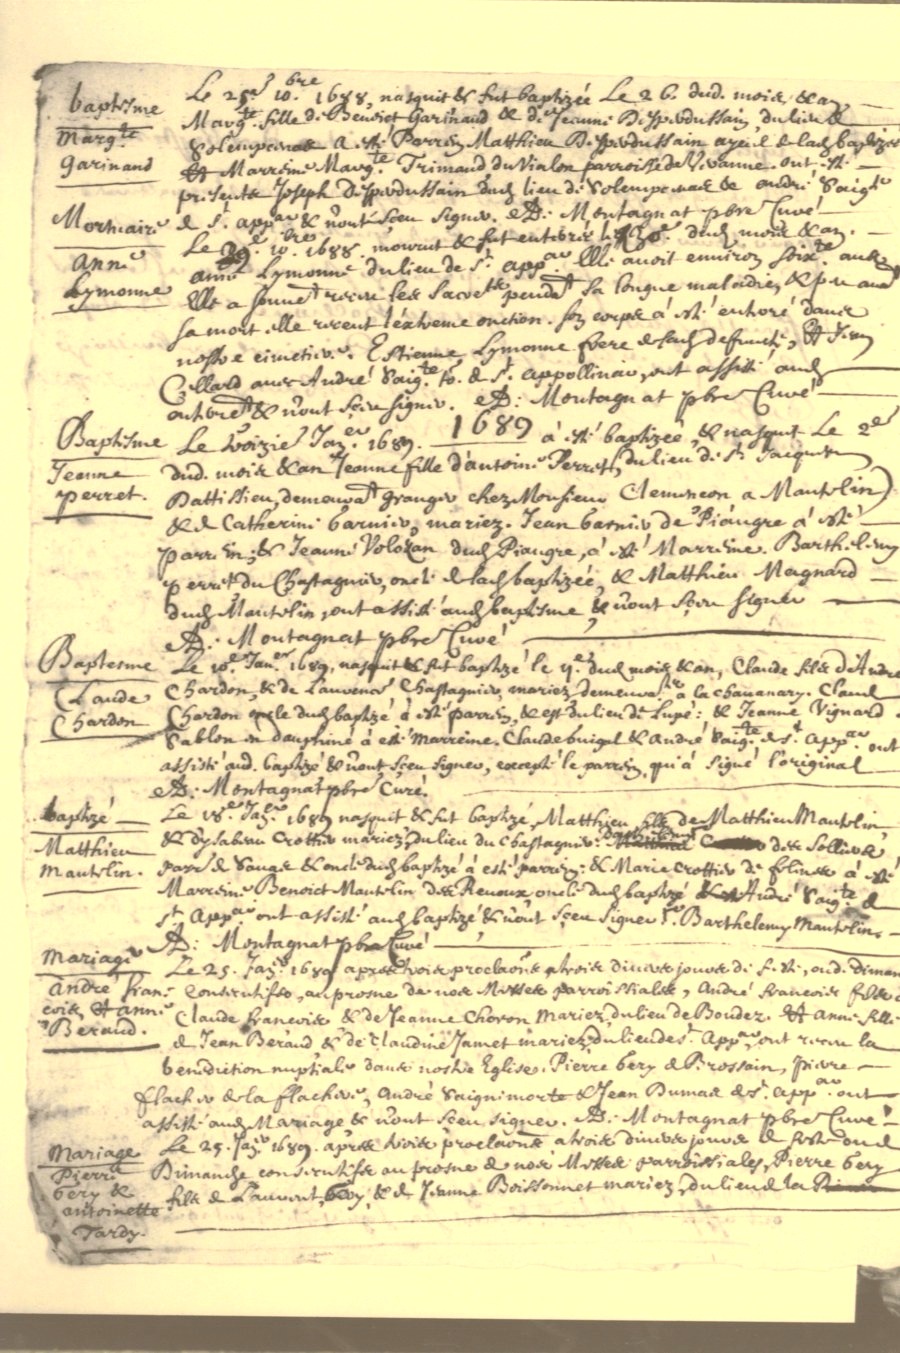 baptisme
Marg.te
Garinand
Le 25.e 10.bre 1688, nasquit & fut baptizée Le 26. dud. mois, & an
Marg.te fille de Benoict Garinand & de Jeanne Despeudussain, du lieu de
Solempcieux A esté Parrein Matthieu Despeudussain ayeul de lad. baptizée
Et Marreine Marg.te Trimaud du Vialon parroisse de Vivanne. ont esté
presents Joseph Despeudussain dud. lieu de & André Saig.te
de s.t app.ar & n'ont sçeu signer. Montagnat pbre Curé
Mortuaire
Anne
Lymonne
Le 29.e 10.bre 1688. mourut & fut enterrée le 30.e dud. mois & an.
anne Lymonne du lieu de s.t app.ar Elle avoit environ soix.te ans
Elle a souvet receu les sacrets pendat sa longue maladie, & peu avat
sa mort elle receut l'extreme onction. son corps à esté enterré dans
nostre cimetiere. Estienne Lymonne frere de lad. defuncte, Et Jean
Cellard avec André Saig.te de s.t appollinar, ont assisté aud.
enterret & n'ont sçeu signer. Montagnat pbre Curé
Baptisme
Jeanne
Perret.
Le troizie Jan.er 1689. 1689 à esté baptizée, & nasquit Le 2.e
dud. mois & an Jeanne fille d'antoine Perret, du lieu de s.t Jacques
Dattissieu, demeurat granger chez Monsieur Clemencon a Mantelin
& de Catherine barnier, mariez. Jean barnier de Piaugre à esté
parrein; & Jeanne Volozan dud. Piaugre, à esté Marreine. Barthelemy
Perret du Chastagnier, oncle de lad. baptizée, & Matthieu Magnard
dud. Mantelin, ont assisté aud. baptisme & n'ont sçeu signer
Montagnat pbre Curé
Baptesme
Claude
Chardon
Le 10.e Jan.er 1689, nasquit & fut baptizé le dud. mois & an, Claude fils d'André
Chardon, & de Laurence Chastagnier, mariez, demeurat à la chavanary. Claude
Chardon oncle dud. baptizé à esté parrein, & est du lieu de Lupé: & Jeanne Vignard
Sablon en dauphiné à esté marreine. Claude & André Saig.te de s.t App.ar ont
assisté aud. baptizé & n'ont sçeu signer, excepté le parrein, qui à signé l'original
Montagnat pbre Curé.
baptizé
Matthieu
Mantelin.
Le 18.e Jan.er 1689 nasquit & fut baptizé, Matthieu fils de Matthieu Mantelin
& d'ysabeau Crottier mariez, du lieu du Chastagnier. des Sollier
Parr de & oncle dud. baptizé à esté parrein: & Marie Crottier de à esté
Marreine Benoict Mantelin des Renoux, oncle dud. baptizé & André Saig.te de
s.t App.ar ont assisté aud. baptizé & n'ont sçeu signer Barthelemy Mantelin.
Montagnat pbre Curé
Mariage
André Fran:
cois, Et anne
Beraud.
Le 25. Jan.er 1689 apres trois proclaons a trois divers jours de feste, ou d. diman
consecutifs, au prosne de nos Messes parroissiales, André Francois fils d
Claude Francois & de Jeanne Choron Mariez, du lieu de Boudez. Et Anne fille
de Jean Beraud & de Claudine Jamet mariez du lieu de s.t App.ar, ont receu la
benediction nuptiale dans nostre Eglise. Pierre Gery de Brossain, Pierre
flacher de la flachere, André Saignimorte & Jean Dumas de s.t app.ar ont
assisté aud. Mariage & n'ont sçeu signer. Montagnat pbre Curé
Mariage
Pierre
Gery &
antoinette
Tardy.
Le 25. Jan.er 1689. apres trois proclaons a trois divers jours de feste ou d
Dimanche consecutifs au prosne de nos Messes parroissiales, Pierre Gery
fils de Laurent Gery, & de Jeanne Boissonnet mariez, du lieu de la